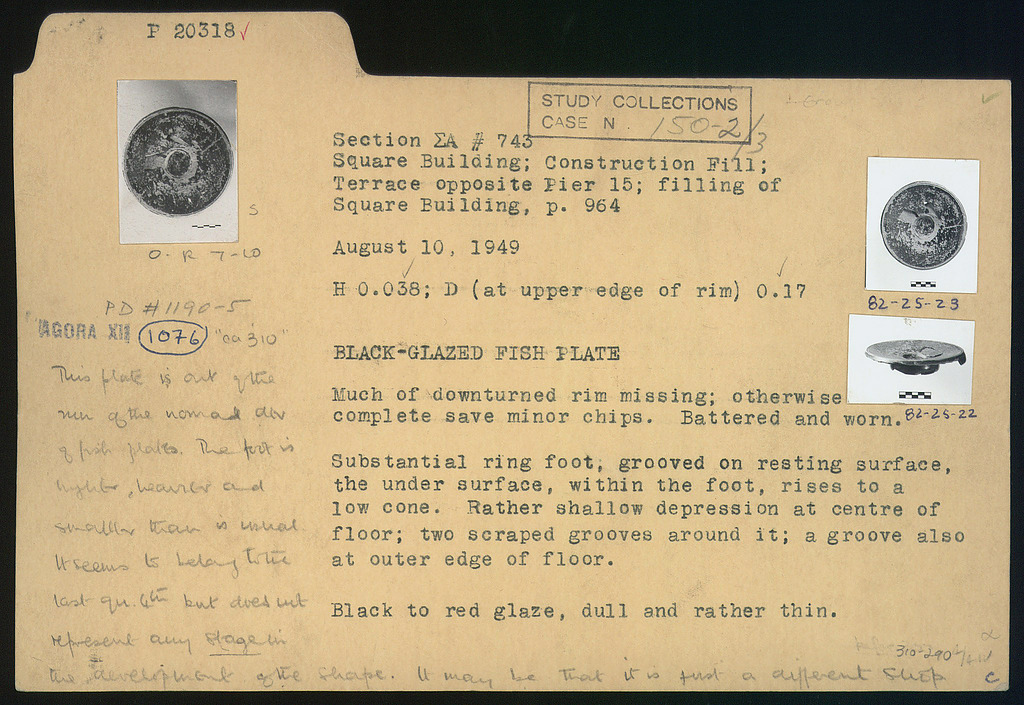 P 20318✓
STUDY COLLECTIONS
CASE N. 150-2/3
Section ΣA # 743
Square Building; Construction Fill;
Terrace opposite Pier 15; filling of
Square Building, p. 964
S
August 10, 1949
O. R 7-10
H 0.038; D (at upper edge of rim) 0.17
82-25-23
PD #1190-5
AGORA XII 1076 "ca 310"
BLACK-GLAZED FISH PLATE
Much of downturned rim missing; otherwise
complete save minor chips. Battered and worn.
82-25-22
Substantial ring foot, grooved on resting surface,
the under surface, within the foot, rises to a
low cone. Rather shallow depression at centre of
floor; two scraped grooves around it; a groove also
at outer edge of floor.
Black to red glaze, dull and rather thin.
This plate is out of the
run of the normal dev
of fish plates. The foot is
higher, heavier and
smaller than is usual.
It seems to belong to the
last qu. 4th but does not
represent any stage in
the development of the shape. It may be that it is just a different shop
310-290
C